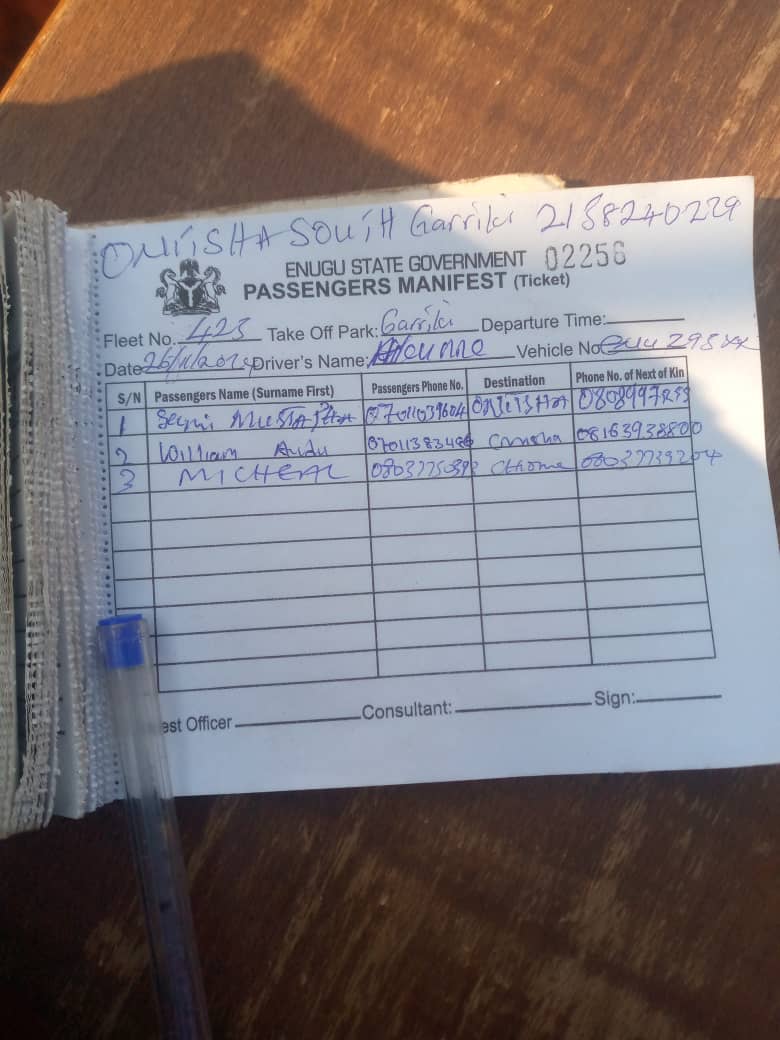 ONITSHA SOUTH Garriki 2158240229
ENUGU STATE GOVERNMENT 02256
PASSENGERS MANIFEST (Ticket)
Fleet No. 423 Take Off Park: Garriki Departure Time:
Date Driver's Name: Vehicle No
S/N Passengers Name (Surname First) Passengers Phone No. Destination Phone No. of Next of Kin
1 MUSTAPHA 07011039604 ONITSHA
2 William Audu 08163938800
3 MICHEAL 08037739204
est Officer Consultant: Sign: